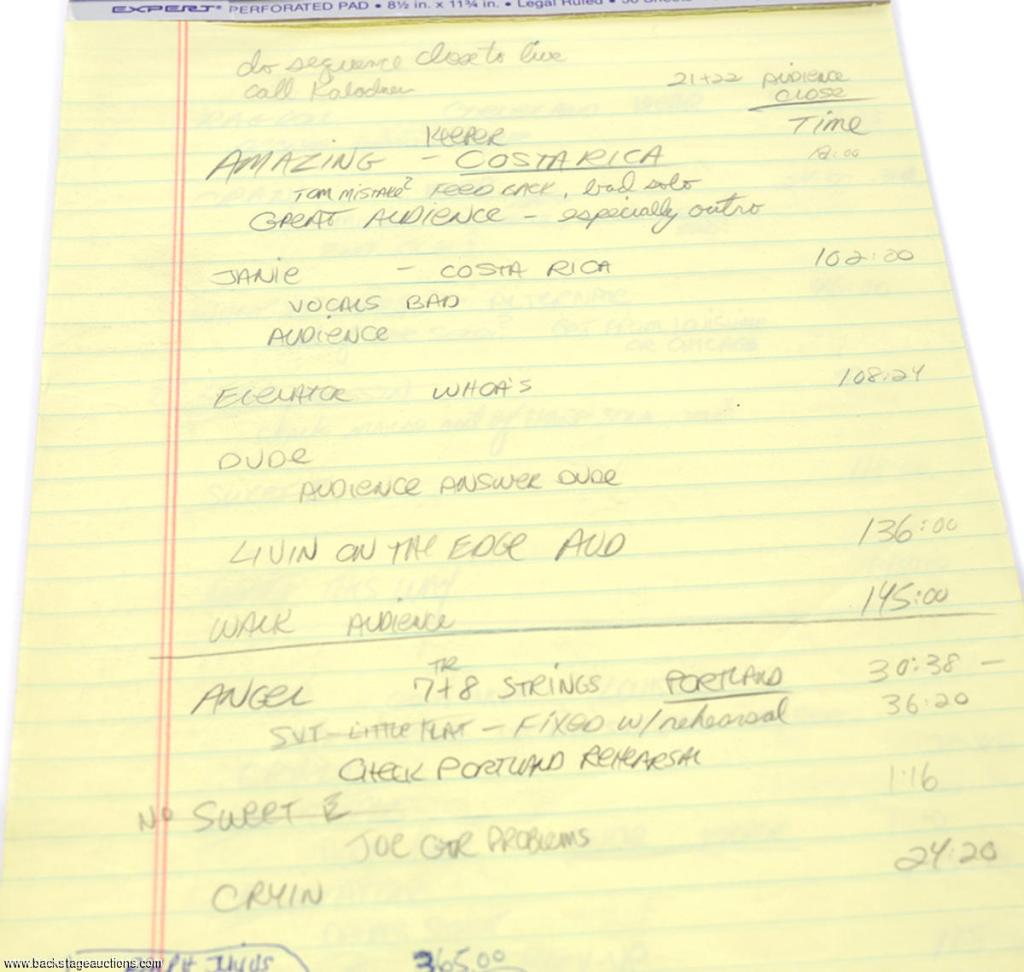 EXPERT® PERFORATED PAD • 8½ in. x 11¾ in. • Legal Ruled • 50 Sheets
do sequence close to live
call Kalodner
21+22 AUDIENCE
CLOSE
TIME
KEEPER
AMAZING - COSTA RICA
TOM MISTAKE? FEEDBACK, bad solo
GREAT AUDIENCE - especially outro
JANIE - COSTA RICA 102:00
VOCALS BAD
AUDIENCE
ELEVATOR WHOA'S 108:24
DUDE
AUDIENCE ANSWER DUDE
LIVIN ON THE EDGE AUD 136:00
WALK AUDIENCE 145:00
TR
ANGEL 7+8 STRINGS PORTLAND 30:38 -
SVT - LITTLE FLAT - FIXED W/rehearsal 36:20
CHECK PORTLAND REHEARSAL
1:16
NO SWEET E
JOE GTR PROBLEMS
24:20
CRYIN
365.00
www.backstageauctions.com